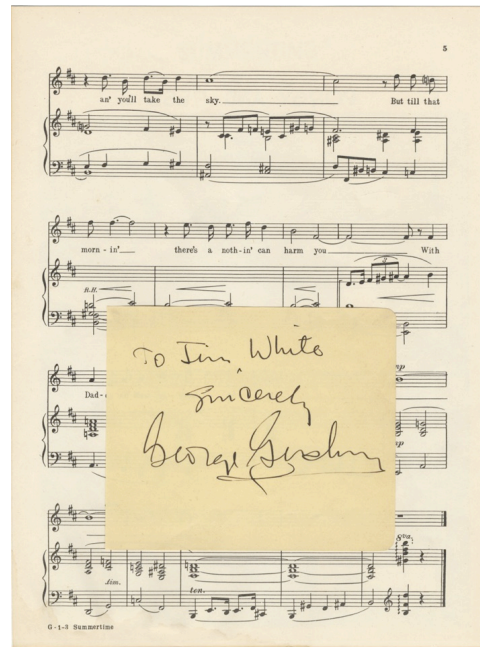 5
an' you'll take the sky. But till that
morn - in' there's a noth-in' can harm you With
R.H.
To Jim White
Sincerely
George Gershwin
mp
Dad-
mp
8va.
dim.
ten.
G-1-3 Summertime